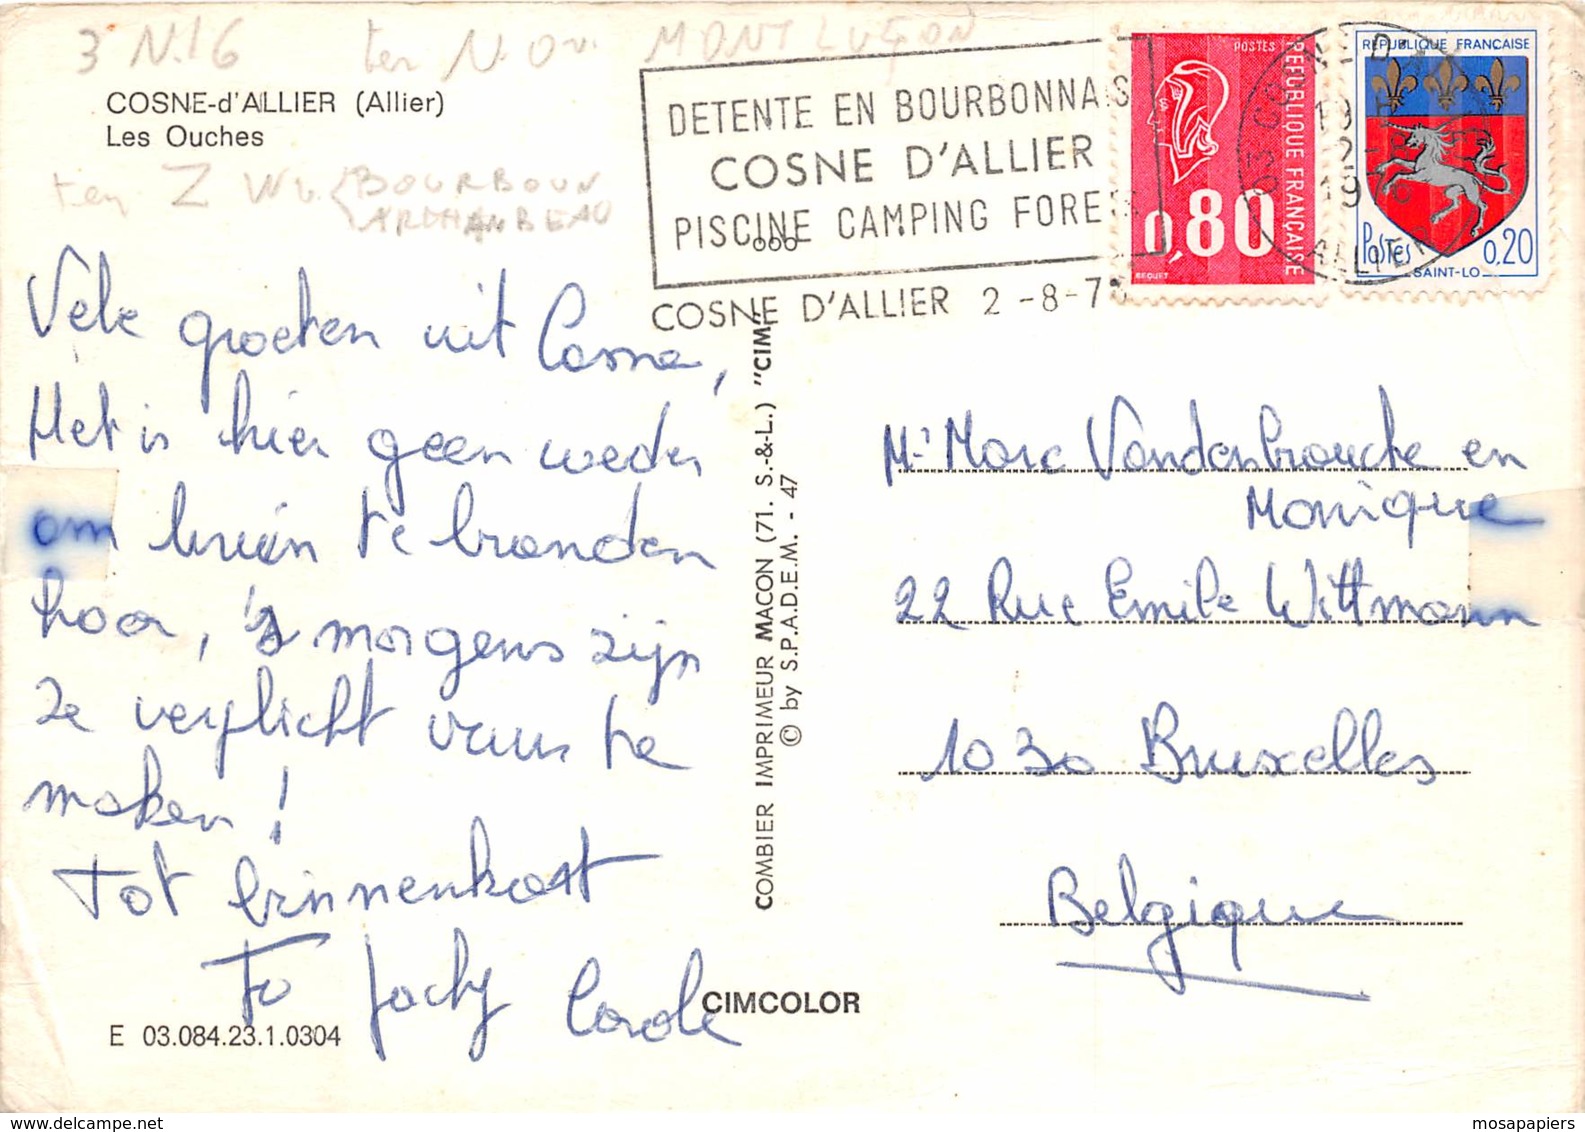 3 N.16 ter N.OV. MONTLUÇON
COSNE-d'ALLIER (Allier)
Les Ouches
ten Z WV. BOURBOUN
ARCHAMBEAU
Vele groeten uit Cosne,
Het is hier geen weder
om bruin te branden
hoor, 's morgens zijn
ze verplicht vuur te
maken!
Tot binnenkort
Fo Jacky Carole
E 03.084.23.1.0304
CIMCOLOR
COMBIER IMPRIMEUR MACON (71. S.-&-L.) "CIM"
© by S.P.A.D.E.M. - 47
DETENTE EN BOURBONNAIS
COSNE D'ALLIER
PISCINE CAMPING FORET
COSNE D'ALLIER 2-8-7
POSTES
REPUBLIQUE FRANÇAISE
0,80
BEQUET
03 COSNE D'
ALLIER
19 H
2-8
1976
REPUBLIQUE FRANÇAISE
Postes 0,20
SAINT-LO
Mr Marc Vandenbroucke en
Monique
22 Rue Emile Wittmann
1030 Bruxelles
Belgique
mosapapiers